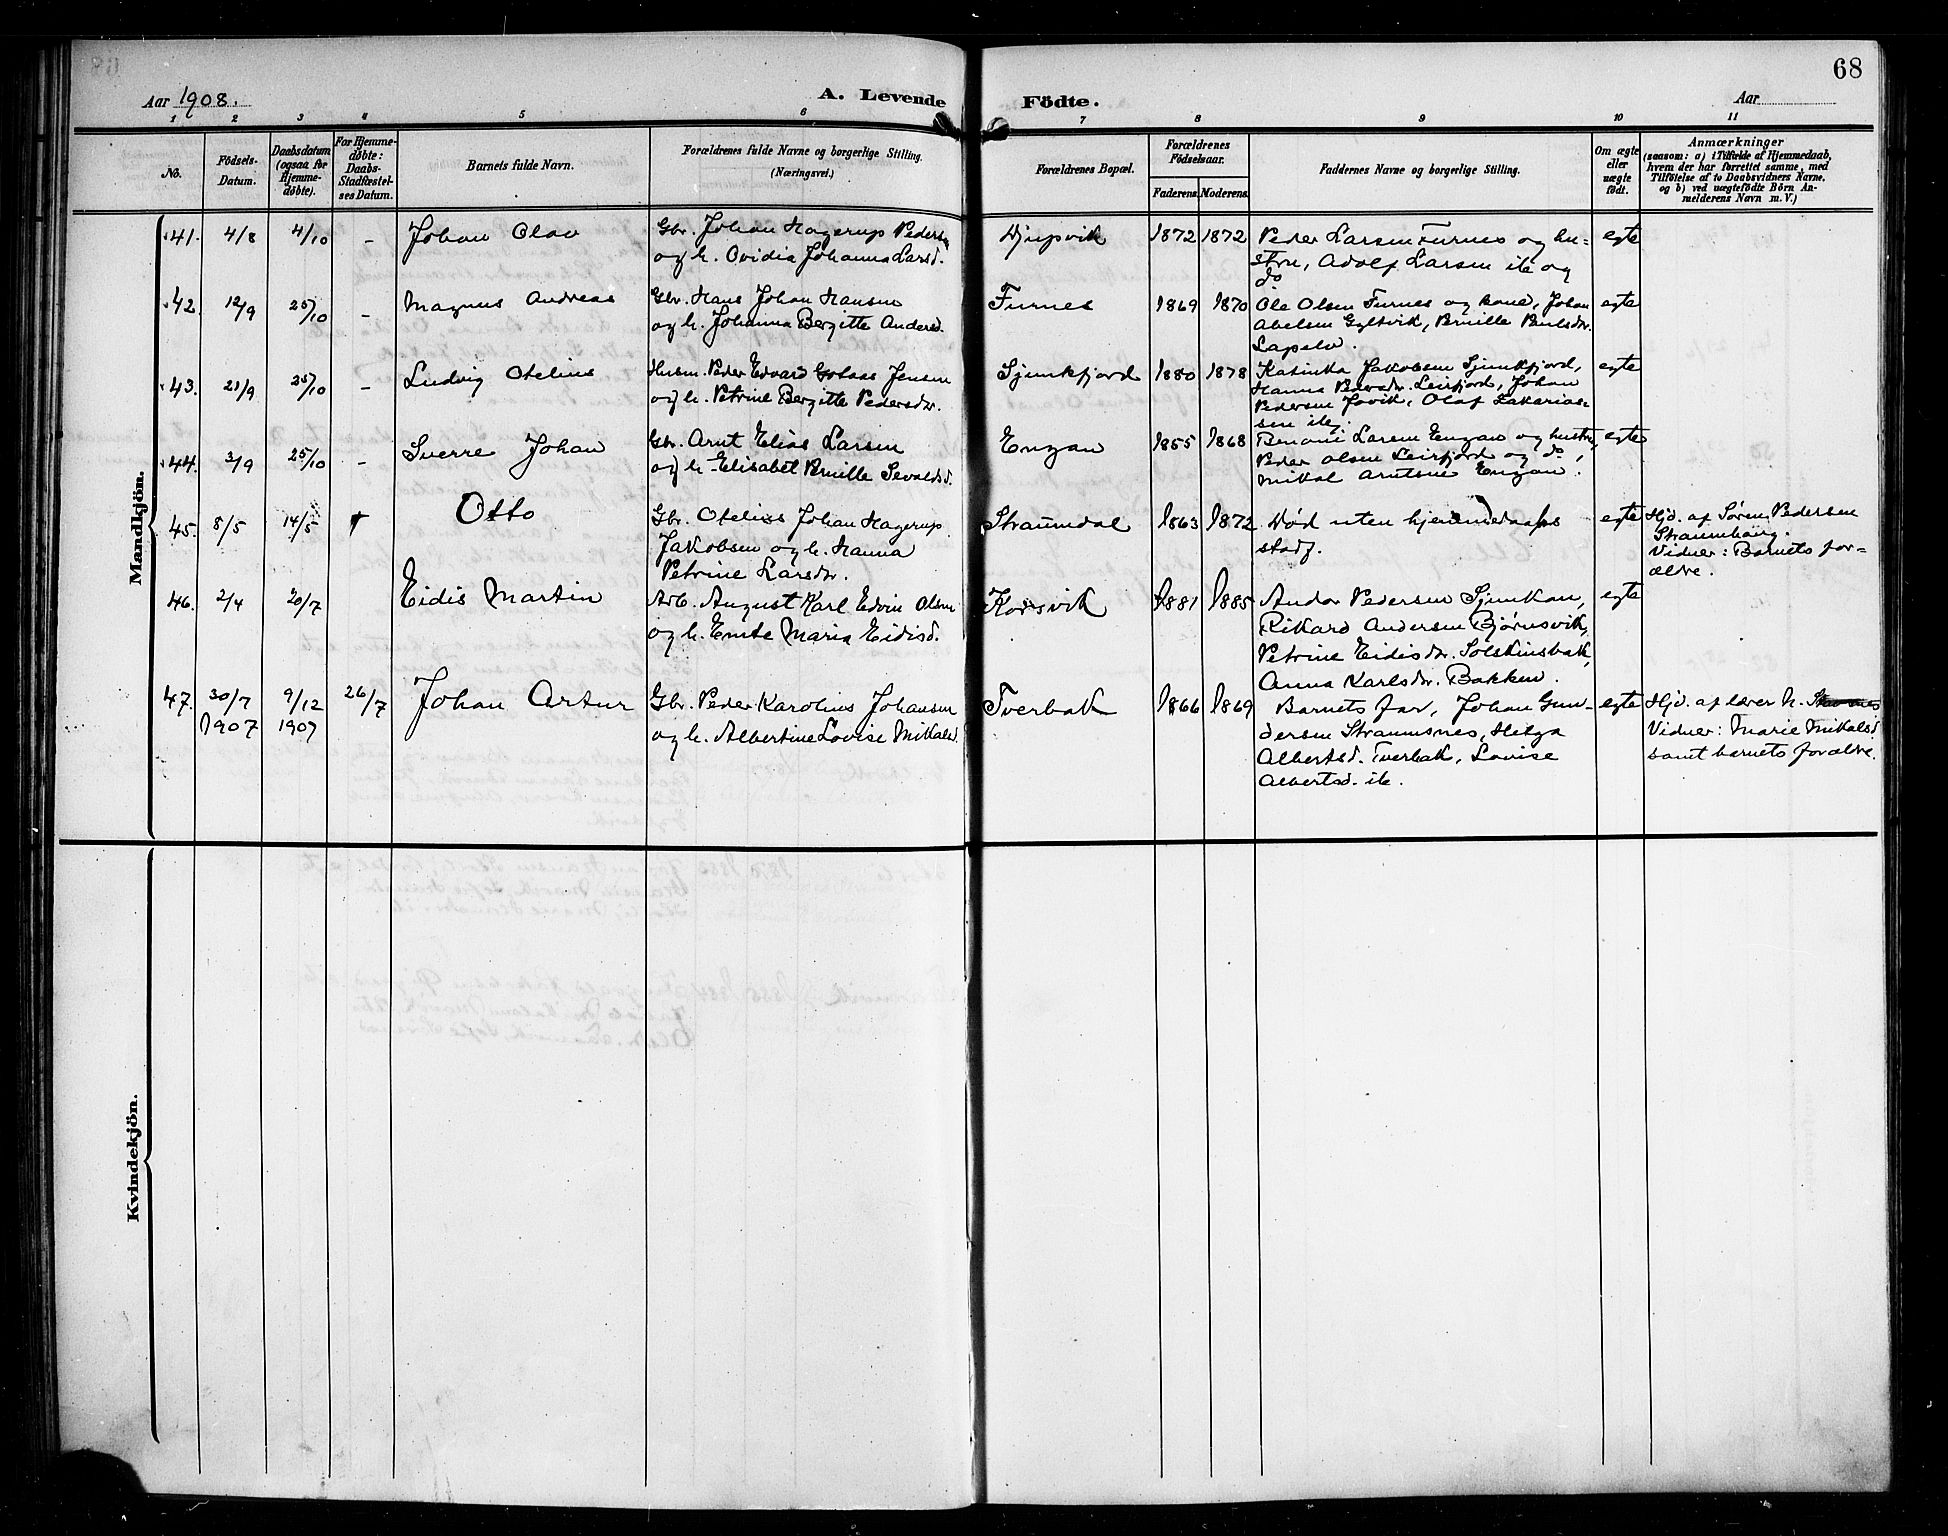 68
Aar 1908.
A. Levende Födte.
Aar
1 2 3 4 5 6 7 8 9 10 11
No.
Födsels-
Datum.
Daabsdatum
(ogsaa for
Hjemme-
döbte).
For Hjemme-
döbte:
Daabs-
Stadfæstel-
ses Datum.
Barnets fulde Navn.
Forældrenes fulde Navne og borgerlige Stilling.
(Næringsvei.)
Forældrenes Bopæl.
Forældrenes
Födselsaar.
Faderens. Moderens.
Faddernes Navne og borgerlige Stilling.
Om ægte
eller
uægte
födt.
Anmærkninger
(saasom: a) i Tilfælde af Hjemmedaab,
hvem der har forrettet samme, med
Tilföielse af to Daabsvidners Navne,
og b) ved uægtefödte Börn An-
melderens Navn m. V.)
Mandkjön.
41. 4/8 4/10 – Johan Olav
Gbr. Johan Hagerup Peders
og h. Ovidia Johanna Larsd.
Djupsvik 1872 1872
Peder Larsen Furnes og hu-
stru, Adolf Larsen ib og
do
egte
42. 12/9 25/10 – Magnus Andreas
Gbr. Hans Johan Hansen
og h. Johanna Bergitte Andersd.
Furnes 1869 1870
Ole Olsen Furnes og kone, Johan
Abelsen Gyltvik,
egte
43. 21/9 25/10 – Ludvig Otelius
Husm. Peder Edvard Jensen
og h. Petrine Bergitte Pedersdr.
Sjunkfjord 1880 1878
Katinka Jakobsen Sjunkfjord,
Hanna Pedersdr. Leirfjord, Johan
Pedersen Jovik, Olaf Zakarias-
sen
egte
44. 3/9 25/10 – Sverre Johan
Gbr. Arnt Elias Larsen
og h. Elisabet Pernille Sevaldsd.
Engan 1855 1868
Benoni Larsen Engan og hustru,
Peder Olsen Leirfjord og do,
Mikal Arntsen Engan.
egte
45. 8/5 14/5 † Otto
Gbr. Otelius Johan Hagerup
Jakobsen og h. Hanna
Petrine Larsdr.
Straumdal 1863 1872
Död uten hjemmedaabs
stadf.
egte
Hjd. af Sören Pedersen
Straumhaug.
Vidner: Barnets for-
ældre.
46. 2/4 20/7 Eidis Martin
Arb. August Karl Edvin Olsen
og h. Emte Maria Eidisd.
Korsvik 1881 1885
Andor Pedersen Sjunkan,
Rikard Andersen Bjørnsvik,
Petrine Eidisdr. Solskinsbak,
Anna Karlsdr. Bakken.
egte
47. 30/7 1907 9/12 1907 26/7 Johan Artur
Gbr. Peder Karolius Johansen
og h. Albertine Lovise Mikalsd.
Tverbak 1866 1869
Barnets far, Johan Gun-
dersen Straumsnes, Helga
Albertsd. Tverbak, Lovise
Albertsd. ib.
egte
Hjd. af lærer H.
Vidner: Marie Mikalsd
samt barnets forældre.
Kvindekjön.